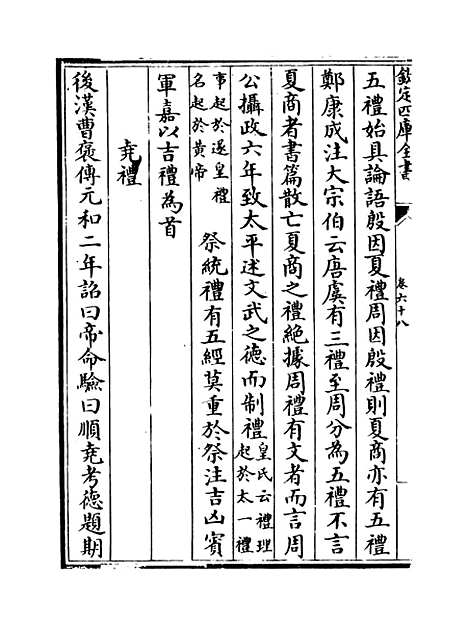 欽定四庫全書
卷六十八
五禮始具論語殷因夏禮周因殷禮則夏商亦有五禮
鄭康成注大宗伯云唐虞有三禮至周分為五禮不言
夏商者書篇散亡夏商之禮絶據周禮有文者而言周
公攝政六年致太平述文武之德而制禮皇氏云禮理
起於太一禮
事起於遂皇禮
名起於黃帝
祭統禮有五經莫重於祭注吉凶賓
軍嘉以吉禮為首
堯禮
後漢曹褒傳元和二年詔曰帝命驗曰順堯考德題期